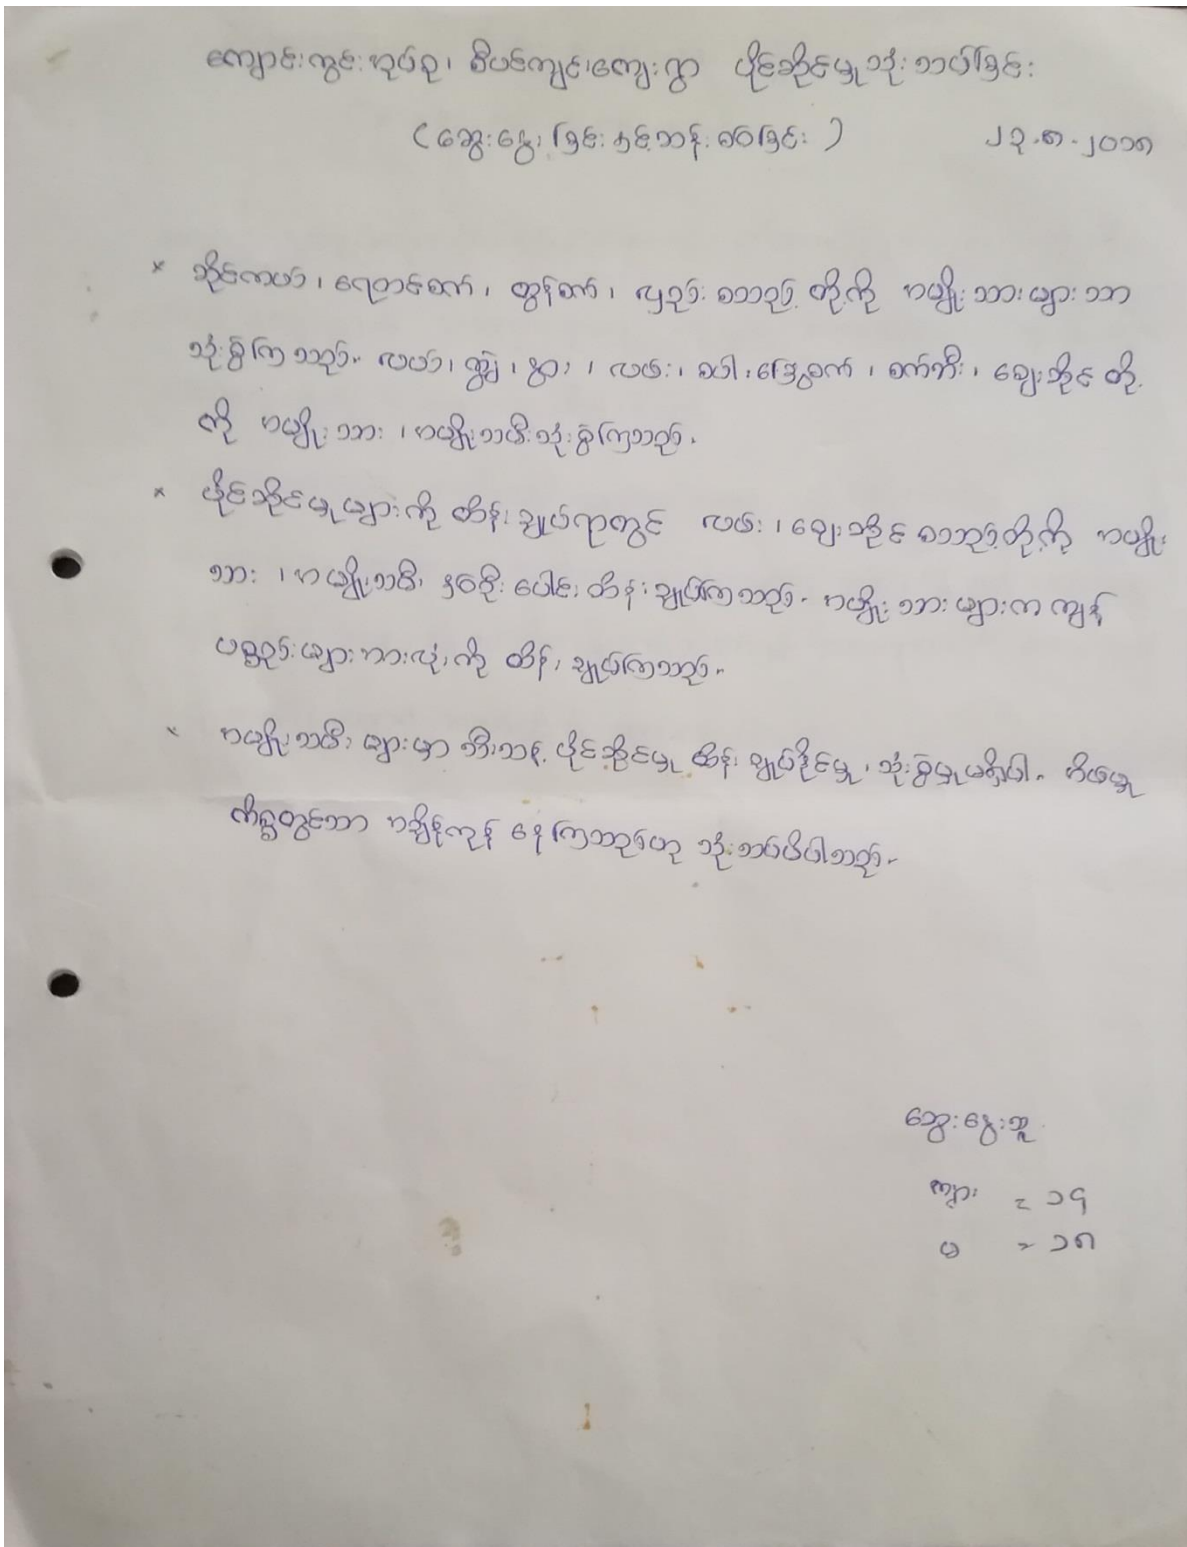 ကျောင်းကွင်းအုပ်စု၊ စီပင်ကျင်းကျေးရွာ ပိုင်ဆိုင်မှုသုံးသပ်ခြင်း
(ဆွေးနွေးခြင်းနှင့်ဆန်းစစ်ခြင်း) ၂၃.၈.၂၀၁၈
× ဆိုင်ကယ်၊ ရေတင်စက်၊ ထွန်စက်၊ လှည်းစသည်တို့ကို အမျိုးသားများသာ
သုံးစွဲကြသည်။ လယ်၊ ကျွဲ၊ နွား၊ လမ်း၊ စပါးခြွေစက်၊ စက်ဘီး၊ ဈေးဆိုင်တို့
ကို အမျိုးသား၊ အမျိုးသမီးသုံးစွဲကြသည်။
× ပိုင်ဆိုင်မှုများကို ထိန်းချုပ်ရာတွင် လမ်း၊ ဈေးဆိုင်စသည်တို့ကို အမျိုး
သား၊ အမျိုးသမီး နှစ်ဦးပေါင်းထိန်းချုပ်ကြသည်။ အမျိုးသားများက ကျန်
ပစ္စည်းများအားလုံးကို ထိန်းချုပ်ကြသည်။
× အမျိုးသမီးများမှာ သီးသန့်ပိုင်ဆိုင်မှု ထိန်းချုပ်နိုင်မှု၊ သုံးစွဲမှုမရှိပါ။ အိမ်မှု
ကိစ္စတွင်သာ အချိန်ကုန်နေကြသည်ဟု သုံးသပ်မိပါသည်။
ဆွေးနွေးသူ
ကျား = ၁၄
မ = ၁၈